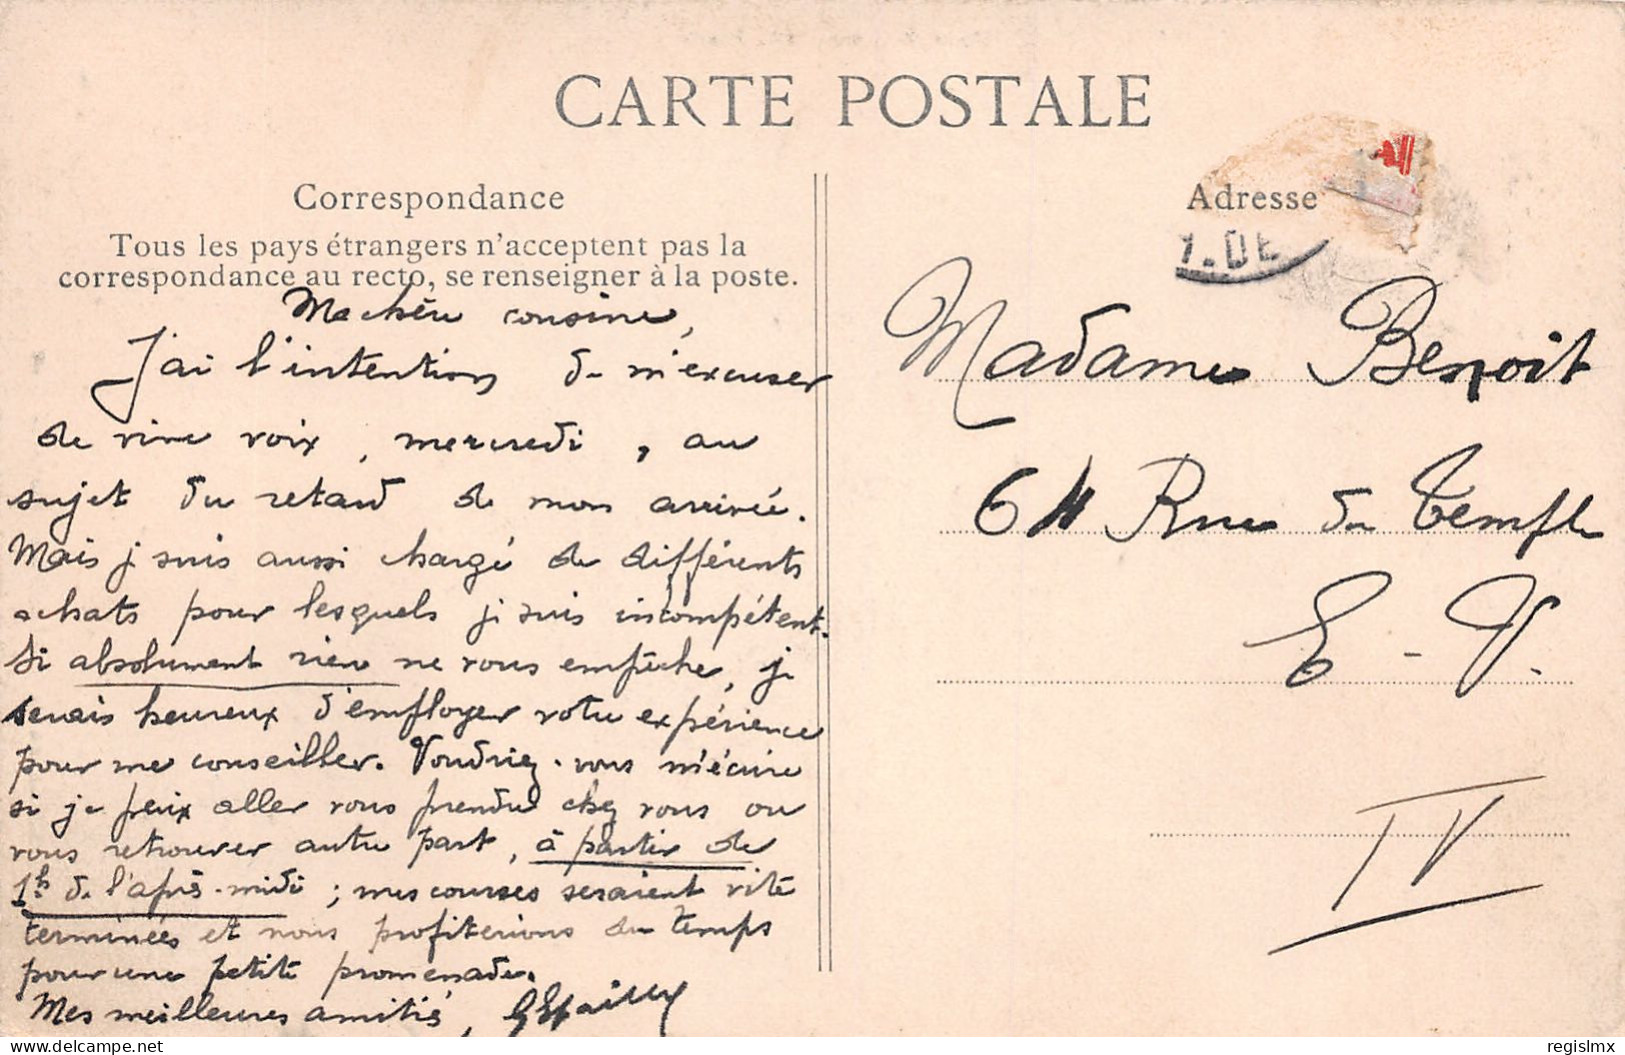 CARTE POSTALE
Correspondance
Tous les pays étrangers n'acceptent pas la
correspondance au recto, se renseigner à la poste.
Ma chère cousine,
J'ai l'intention de m'excuser
de vive voix, mercredi, au
sujet du retard de mon arrivée.
Mais je suis aussi chargé de différents
achats pour lesquels je suis incompétent.
Si absolument rien ne vous empêche, je
serais heureux d'employer votre expérience
pour me conseiller. Voudriez-vous m'écrire
si je peux aller vous prendre chez vous ou
vous retrouver autre part, à partir de
1h de l'après-midi ; mes courses seraient vite
terminées et nous profiterions du temps
pour une petite promenade.
Mes meilleures amitiés,
Adresse
1.DE
Madame Benoit
64 Rue du Temple
E-V.
IV
delcampe.net
regislmx